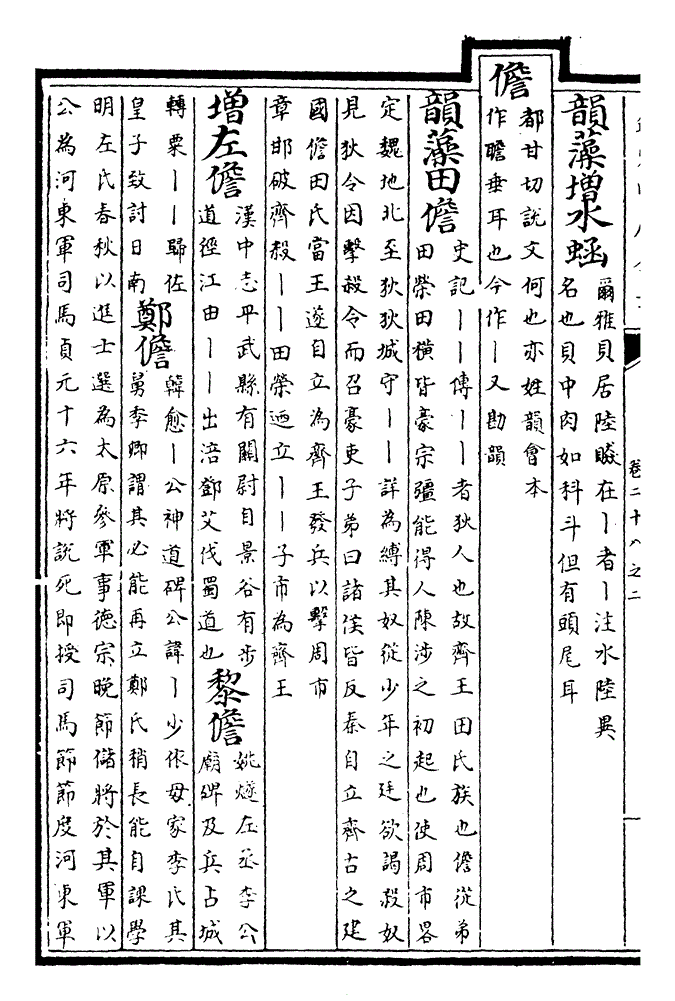 卷二十八之二
韻藻增水蜬
爾雅貝居陸贆在丨者丨注水陸異
名也貝中肉如科斗但有頭尾耳
儋
都甘切說文何也亦姓韻會本
作聸垂耳也今作丨又勘韻
韻藻田儋
史記丨丨傳丨丨者狄人也故齊王田氏族也儋從弟
田榮田橫皆豪宗彊能得人陳涉之初起也使周市畧
定魏地北至狄狄城守丨丨詳為縛其奴從少年之廷欲謁殺奴
見狄令因擊殺令而召豪吏子弟曰諸侯皆反秦自立齊古之建
國儋田氏當王遂自立為齊王發兵以擊周市
章邯破齊殺丨丨田榮迺立丨丨子市為齊王
增左儋
漢中志平武縣有關尉自景谷有步
道徑江由丨丨出涪鄧艾伐蜀道也
黎儋
姚燧左丞李公
廟碑及兵占城
轉粟丨丨歸佐
皇子致討日南
鄭儋
韓愈丨公神道碑公諱丨少依母家李氏其
舅李卿謂其必能再立鄭氏稍長能自課學
明左氏春秋以進士選為太原參軍事德宗晚節儲將於其軍以
公為河東軍司馬貞元十六年將說死即授司馬節節度河東軍